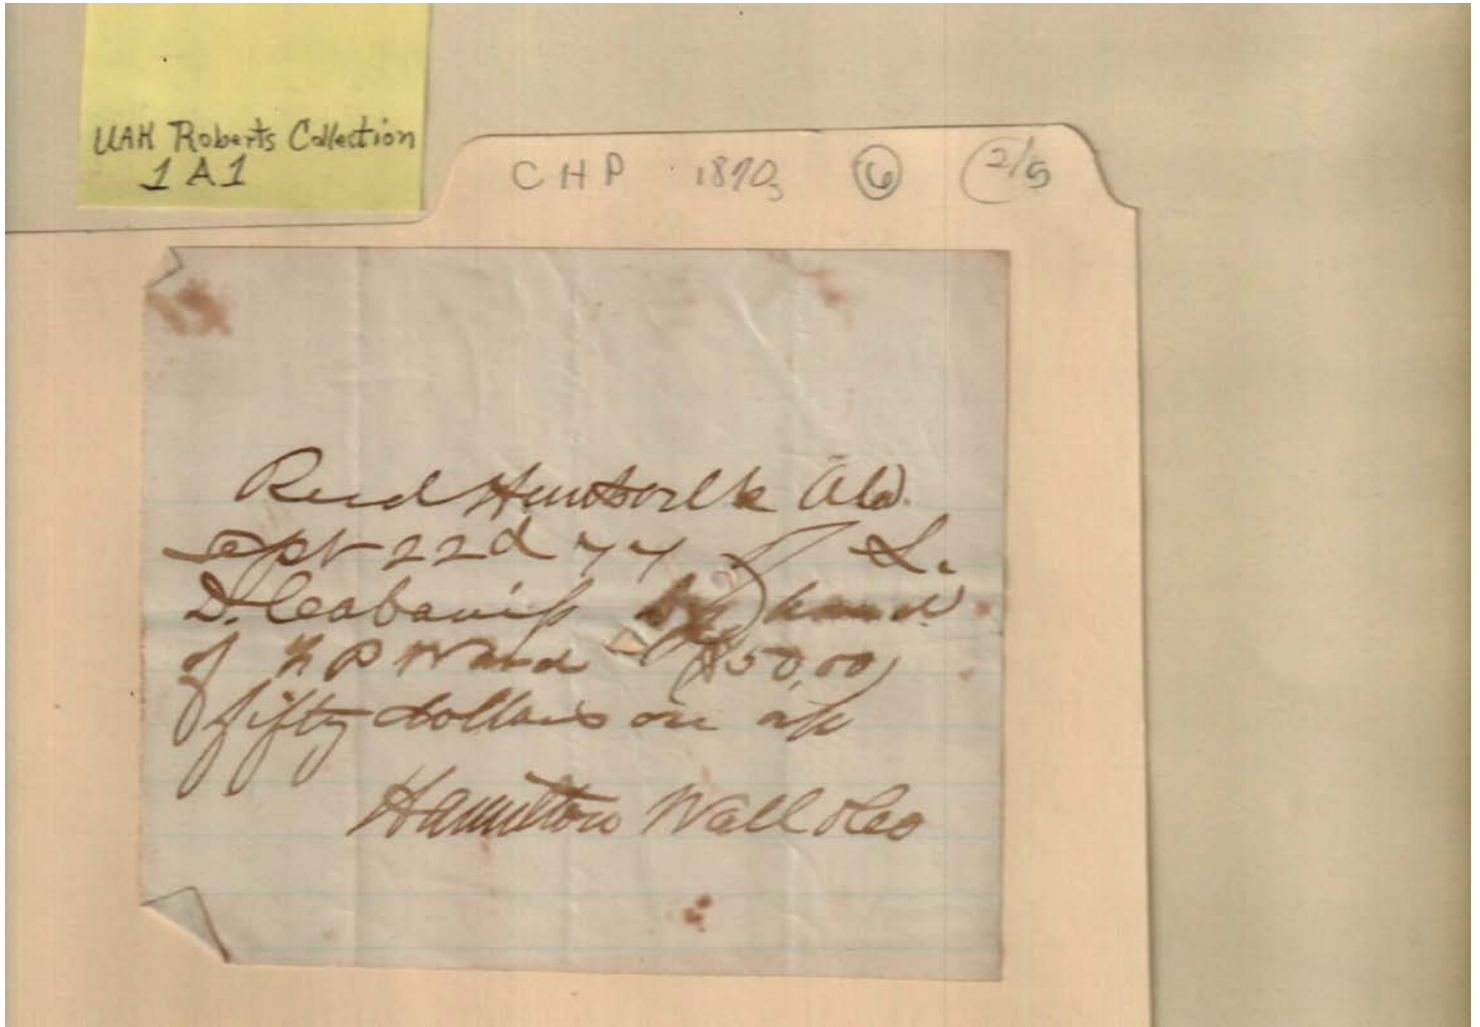 UAH Roberts Collection
1A1
CHP 1870s 6 2/5
Recd Huntsville Ala.
Sept 22d 77 of S.
D. Cabaniss by hand
of Z P Ward $50,00
fifty dollars on a/c
Hamilton Wall & Co